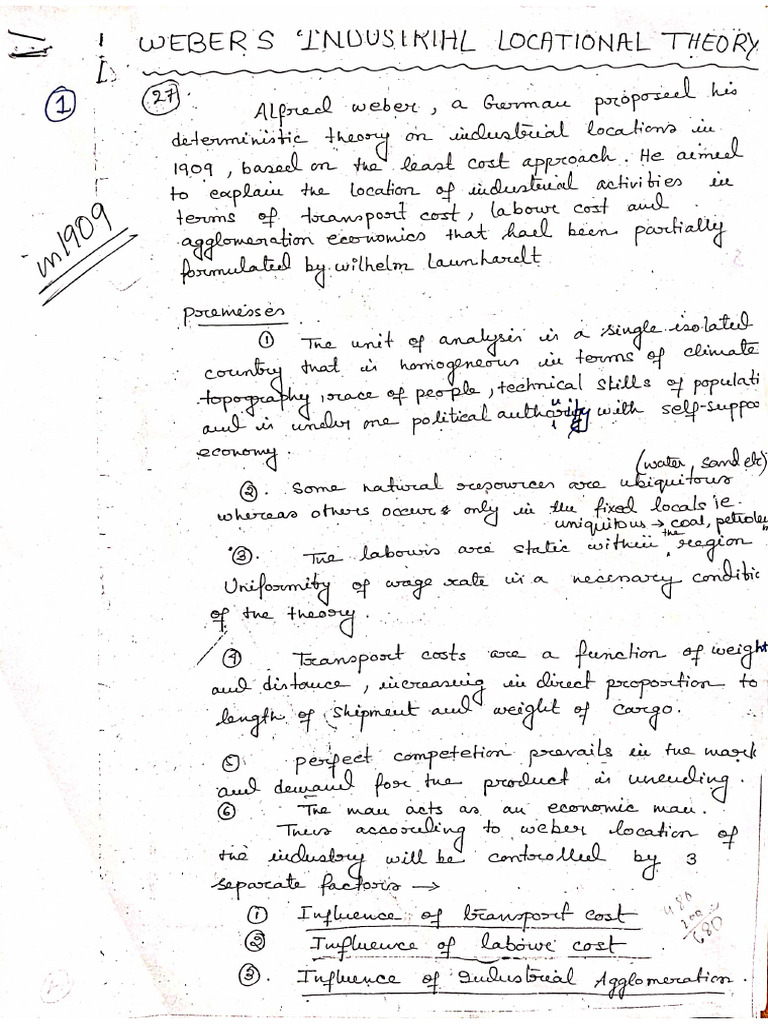 WEBER'S INDUSTRIAL LOCATIONAL THEORY
1
27
Alfred Weber, a German proposed his
deterministic theory on industrial locations in
1909, based on the least cost approach. He aimed
to explain the location of industrial activities in
terms of transport cost, labour cost and
agglomeration economics that had been partially
formulated by Wilhelm Launhardt
in 1909
Premesses
① The unit of analysis is a single isolated
country that is homogeneous in terms of climate
topography, race of people, technical skills of populati
and is under one political authority with self-suppo
economy.
(water, sand etc)
②. Some natural resources are ubiquitous
whereas others occurs only in the fixed locals ie.
uniquitous → coal, petroleum
③. The labours are static within the region
Uniformity of wage rate is a necessary conditio
of the theory.
④ Transport costs are a function of weight
and distance, increasing in direct proportion to
length of shipment and weight of cargo.
⑤ perfect competetion prevails in the mark
and demand for the product is unending.
⑥ The man acts as an economic man.
Thus according to weber location of
the industry will be controlled by 3
separate factors →
① Influence of transport cost
② Influence of labour cost
③. Influence of Industrial Agglomeration.
480
200
680